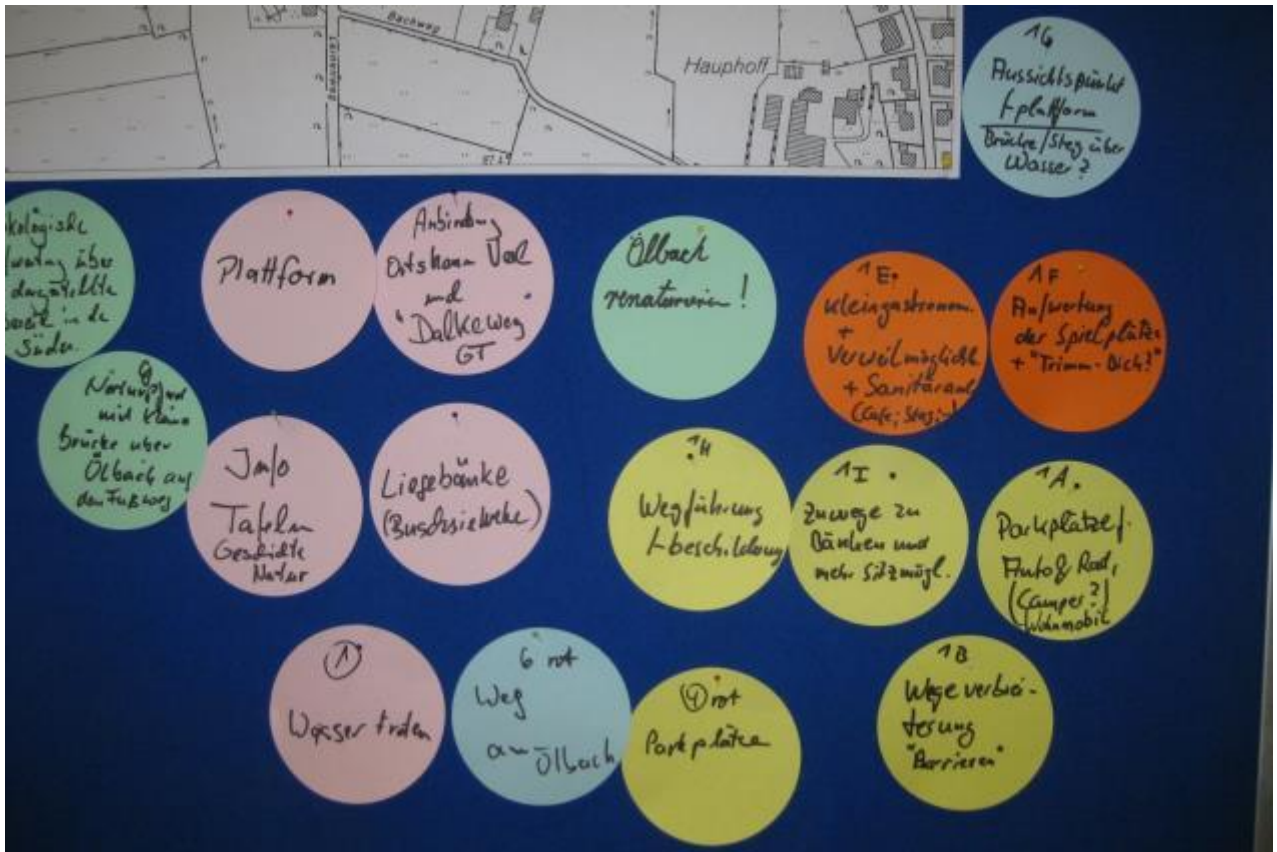 Bachweg
Hauphoff
1G
Aussichtspunkt
+plattform
Brücke/Steg über
Wasser?
kologische
über
in de
Süden.
Plattform
Anbindung
Ortskern Verl
und
"Dalkeweg
GT
Ölbach
renaturieren!
1E
Kleingastronom.
+
Verweilmöglichk
+ Sanitäranl
1F
Aufwertung
der Spielplätze
+ "Trimm-Dich?"
mit kleiner
Brücke über
Ölbach auf
den Fußweg
Info
Tafeln
Geschichte
Natur
Liegebänke
1H
Wegführung
+beschilderung
1I
Zuwege zu
Bänken und
mehr Sitzmögl.
1A
Parkplätze f.
Auto & Rad,
(Camper?)
Wohnmobil
1
Wasser treten
6 rot
Weg
am Ölbach
4 rot
Parkplätze
1B
Wegeverbrei-
terung
"Barrieren"